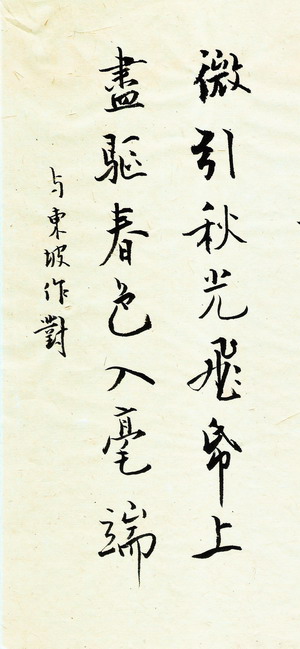 微引秋光飛帋上
盡驅春色入毫端
与東坡作對